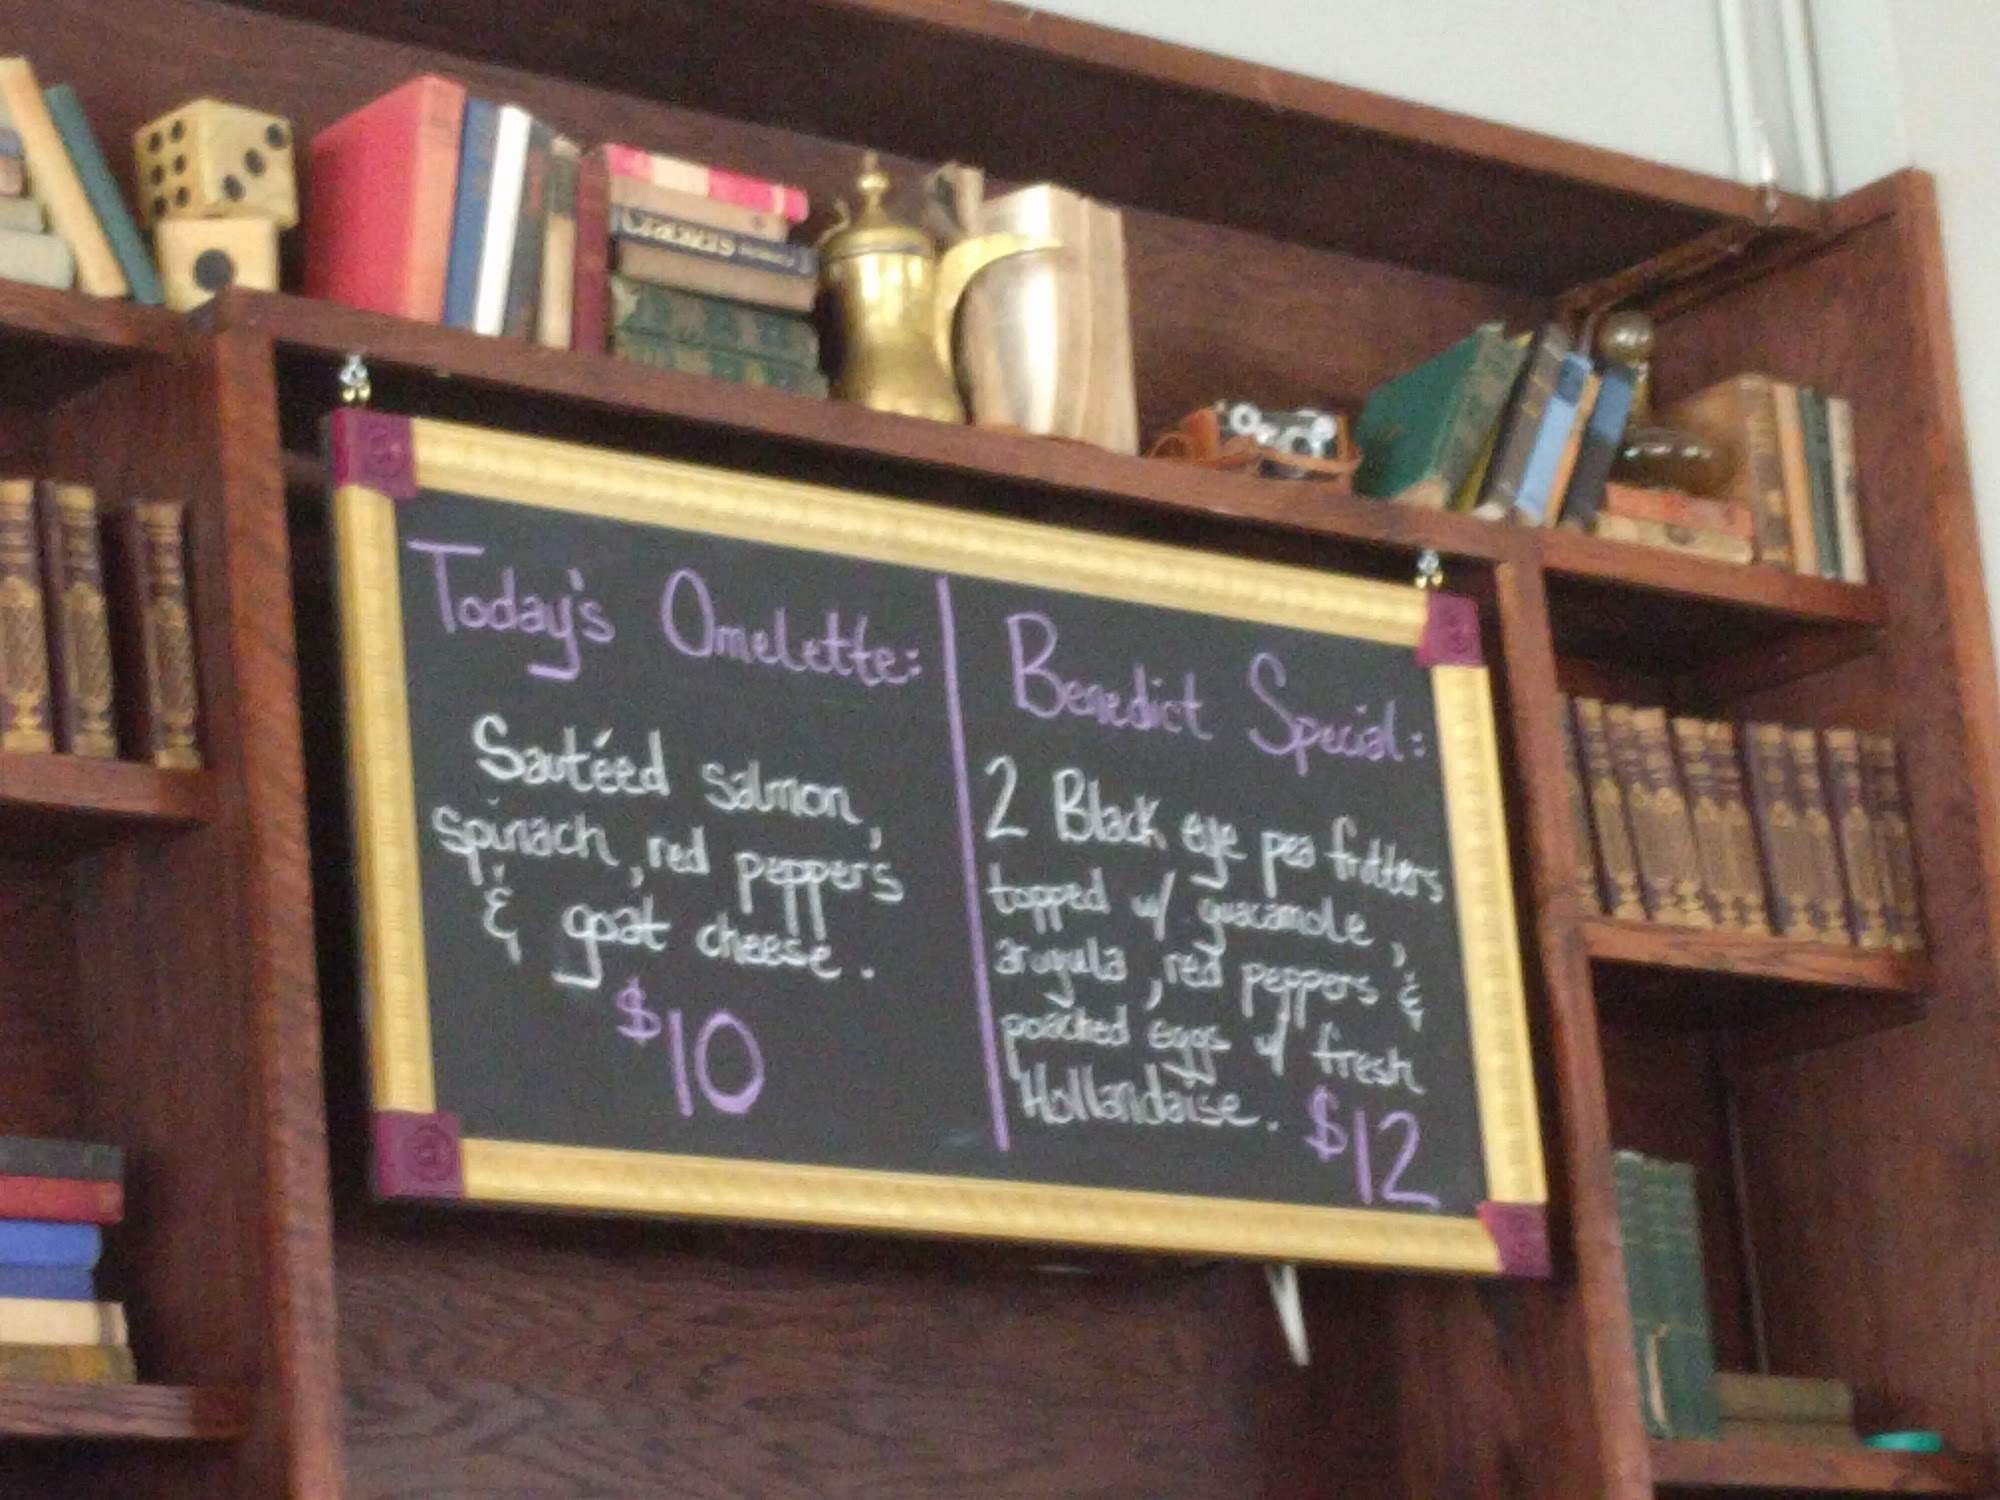 Today's Omelette:
Sautéed salmon,
spinach, red peppers
& goat cheese.
$10
Benedict Special:
2 Black eye pea fritters
topped w/ guacamole,
arugula, red peppers &
poached eggs w/ fresh
Hollandaise. $12